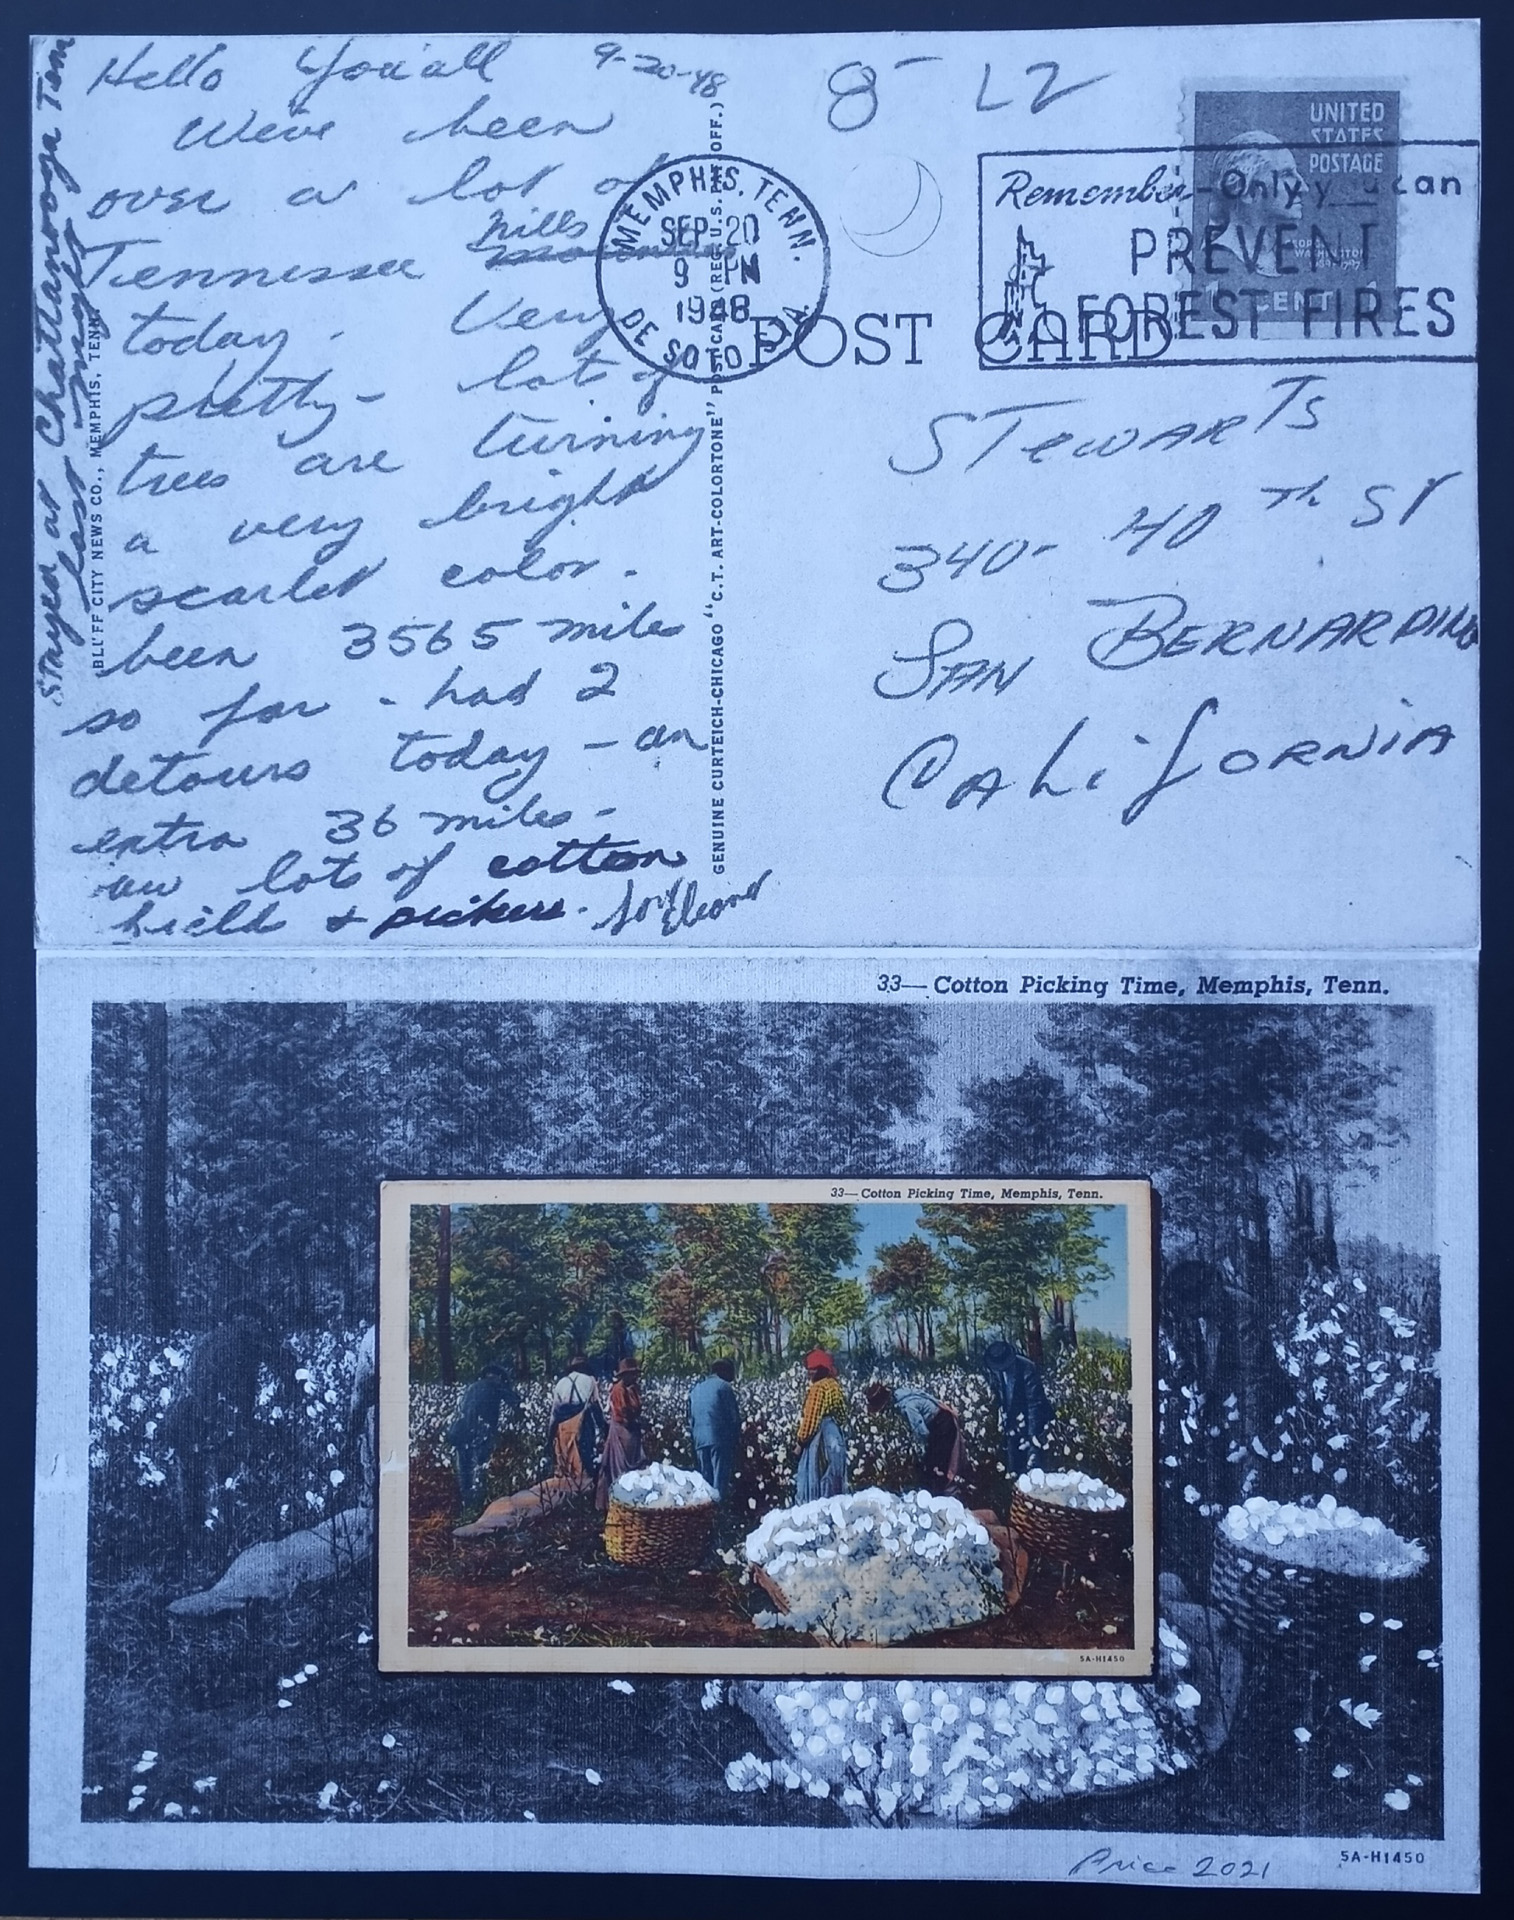 Hello You'all 9-20-48
We've been
over a lot of
hills
Tennessee
today. Very
pretty - lots of
trees are turning
a very bright
scarlet color.
been 3565 miles
so far - had 2
detours today - an
extra 36 miles -
lots of cotton
fields & pickers. Eleanor
Stayed at Chattanooga Tenn
last night
BLUFF CITY NEWS CO., MEMPHIS, TENN.
GENUINE CURTEICH-CHICAGO "C.T. ART-COLORTONE" POST CARD (REG. U.S. PAT. OFF.)
8- L2
MEMPHIS, TENN.
SEP 20
9 PM
1948
DE SOTO STA.
UNITED
STATES
POSTAGE
GEORGE
WASHINGTON
1 CENT 1
Remember - Only you can
PREVENT
FOREST FIRES
POST CARD
STewARTS
340- 40 Th ST
SAN BERNARDINO
CALiFORNiA
33—Cotton Picking Time, Memphis, Tenn.
33—Cotton Picking Time, Memphis, Tenn.
5A-H1450
Price 2021
5A-H1450